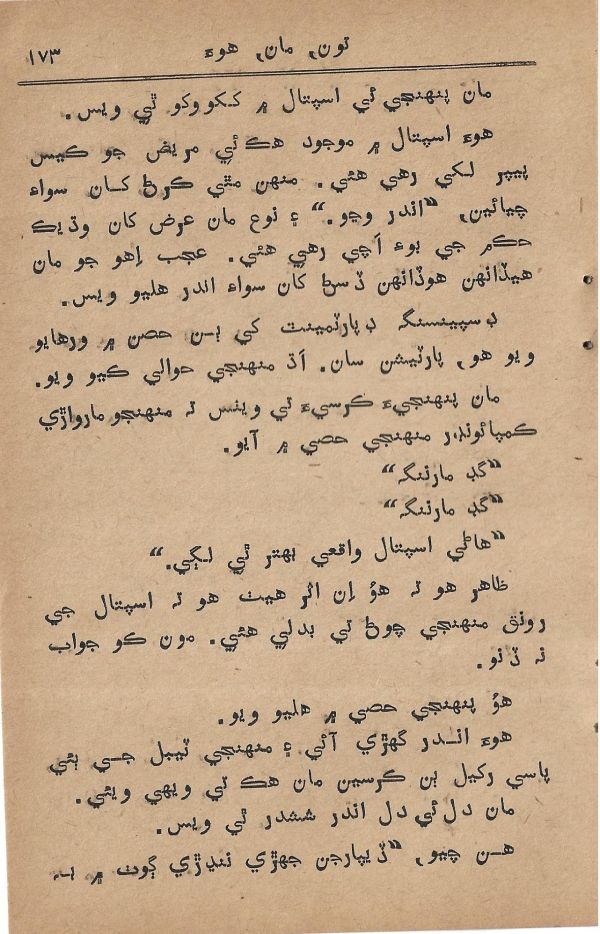 تون، مان، هوءَ ١٧٣
مان پنهنجي ئي اسپتال ۾ ککو وکو ٿي ويس.
هوءَ اسپتال ۾ موجود هڪ ئي مريض جو ڪيس
پيپر لکي رهي هئي. منهن مٿي کڻڻ کان سواءِ
چيائين، ”اندر وڃو.“ ۽ نوع مان عرض کان وڌيڪ
حڪم جي بوءِ اچي رهي هئي. عجب اِهو جو مان
هيڏانهن هوڏانهن ڏسڻ کان سواءِ اندر هليو ويس.
ڊسپينسنگ ڊپارٽمينٽ کي ٻن حصن ۾ ورهايو
ويو هو، پارٽيشن سان. اَڌ منهنجي حوالي ڪيو ويو.
مان پنهنجيءَ ڪرسيءَ تي ويٺس ته منهنجو مارواڙي
ڪمپائونڊر منهنجي حصي ۾ آيو.
”گڊ مارننگ“
”گڊ مارننگ“
”هاڻي اسپتال واقعي بهتر ٿي لڳي.“
ظاهر هو ته هوُ اِن اثر هيٺ هو ته اسپتال جي
رونق منهنجي چوڻ تي بدلي هئي. مون ڪو جواب
نه ڏنو.
هوُ پنهنجي حصي ۾ هليو ويو.
هوءَ اندر گهڙي آئي ۽ منهنجي ٽيبل جي ٻئي
پاسي رکيل ٻن ڪرسين مان هڪ تي ويهي ويئي.
مان دل ئي دل اندر ششدر ٿي ويس.
هن چيو، ”ڏيپارجن جهڙي ننڍڙي ڳوٺ ۾ به